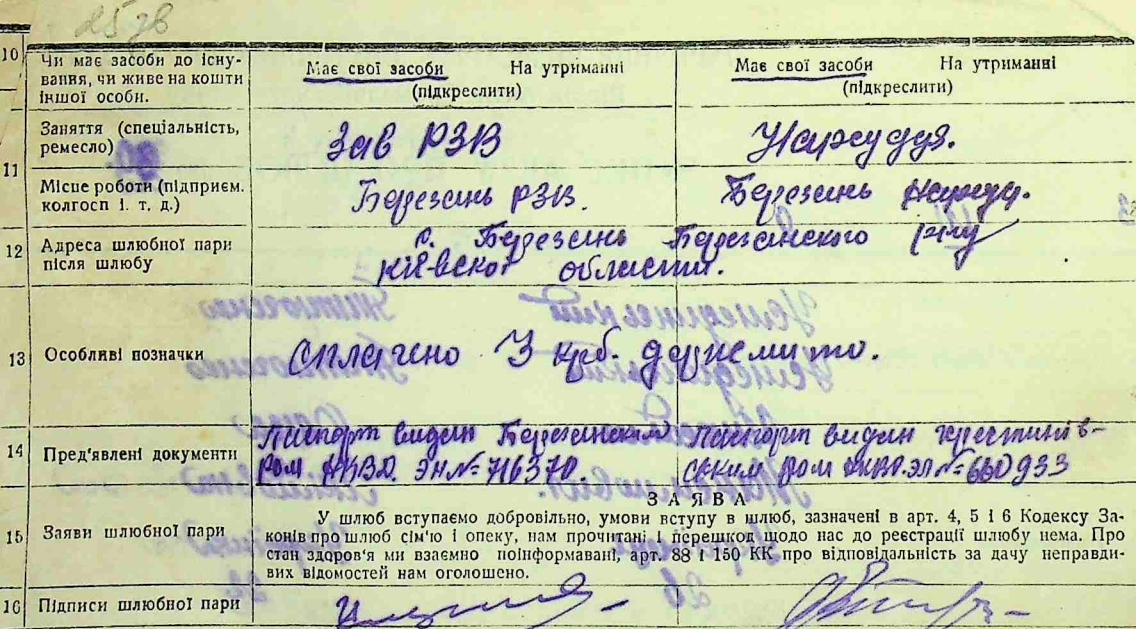 25 зв
10 Чи має засоби до існування, чи живе на кошти іншої особи.
Має свої засоби На утриманні
(підкреслити)
Має свої засоби На утриманні
(підкреслити)
11 Заняття (спеціальність, ремесло)
Зав РЗВ
Нарсуддя.
Місце роботи (підприєм. колгосп і. т. д.)
Березань РЗВ.
Березань Нарсуд.
12 Адреса шлюбної пари після шлюбу
с. Березань Березанского р-ну
області.
13 Особливі позначки
сплачено 3 крб. держмито.
14 Пред'явлені документи
Паспорт видан Березанским
Ром НКВД. ЭН. № 716370.
Паспорт видан
ским Ром НКВД. ЭЛ № 660933
ЗАЯВА
15 Заяви шлюбної пари
У шлюб вступаємо добровільно, умови вступу в шлюб, зазначені в арт. 4, 5 і 6 Кодексу За-
конів про шлюб сім'ю і опеку, нам прочитані і перешкод щодо нас до реєстрації шлюбу нема. Про
стан здоров'я ми взаємно поінформавані, арт. 88 і 150 КК про відповідальність за дачу неправди-
вих відомостей нам оголошено.
16 Підписи шлюбної пари